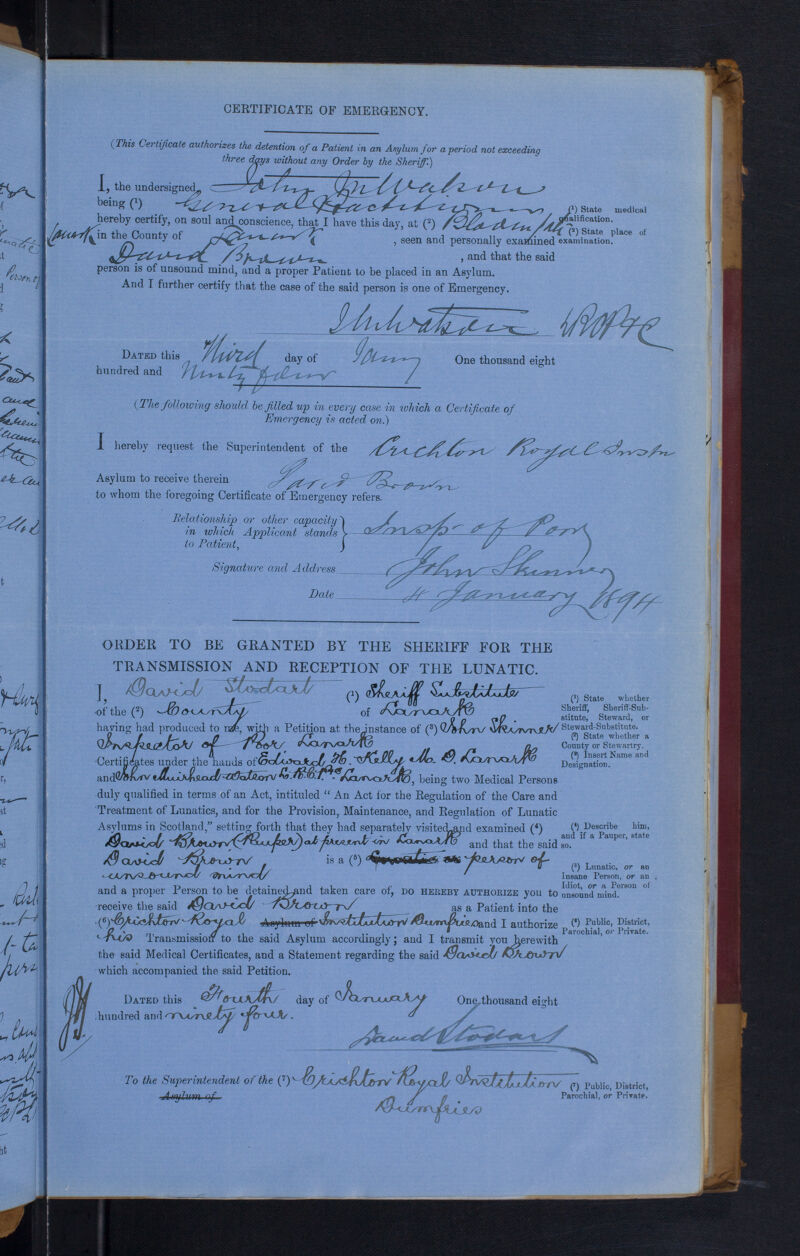 CERTIFICATE OF EMERGENCY.
(This Certificate authorizes the detention of a Patient in an Asylum for a period not exceeding
three days without any Order by the Sheriff.)
I, the undersigned, John M Watson
being (¹) General Practitioner
(¹) State medical
qualification.
hereby certify, on soul and conscience, that I have this day, at (²)
(²) State place of
examination.
Lanark in the County of Lanark, seen and personally examined
David Brown, and that the said
person is of unsound mind, and a proper Patient to be placed in an Asylum.
And I further certify that the case of the said person is one of Emergency.
J M Watson
DATED this Third day of Jany One thousand eight
hundred and Ninety four
(The following should be filled up in every case in which a Certificate of
Emergency is acted on.)
I hereby request the Superintendent of the Crichton Royal Instn
Asylum to receive therein David Brown
to whom the foregoing Certificate of Emergency refers.
Relationship or other capacity
in which Applicant stands
to Patient,
Insp. of Poor
Signature and Address John Skinner
Date 4 January 1894
ORDER TO BE GRANTED BY THE SHERIFF FOR THE
TRANSMISSION AND RECEPTION OF THE LUNATIC.
I, David Stodart (¹) Sheriff Substitute
of the (²) County of Lanark
(¹) State whether
Sheriff, Sheriff-Sub-
stitute, Steward, or
Steward-Substitute.
(²) State whether a
County or Stewartry.
(³) Insert Name and
Designation.
having had produced to me, with a Petition at the instance of (³) John Skinner
Inspector of Poor Lanark
Certificates under the hands of Edward H. Kelly M. D. Lanark
and John Muirhead Watson L.R.C.P. &c Lanark, being two Medical Persons
duly qualified in terms of an Act, intituled “ An Act for the Regulation of the Care and
Treatment of Lunatics, and for the Provision, Maintenance, and Regulation of Lunatic
Asylums in Scotland,” setting forth that they had separately visited and examined (⁴)
(⁴) Describe him,
and if a Pauper, state
so.
David Brown (Pauper) at present in Lanark and that the said
David Brown is a (⁵) Lunatic or person of
unsound mind
(⁵) Lunatic, or an
Insane Person, or an
Idiot, or a Person of
unsound mind.
and a proper Person to be detained and taken care of, DO HEREBY AUTHORIZE you to
receive the said David Brown as a Patient into the
(⁶) Crichton Royal Asylum of Institution Dumfries and I authorize
(⁶) Public, District,
Parochial, or Private.
his Transmission to the said Asylum accordingly; and I transmit you herewith
the said Medical Certificates, and a Statement regarding the said David Brown
which accompanied the said Petition.
DATED this Fourth day of January One thousand eight
hundred and ninety four.
David Stodart
To the Superintendent of the (⁷) Crichton Royal Institution
Asylum of
Dumfries
(⁷) Public, District,
Parochial, or Private.